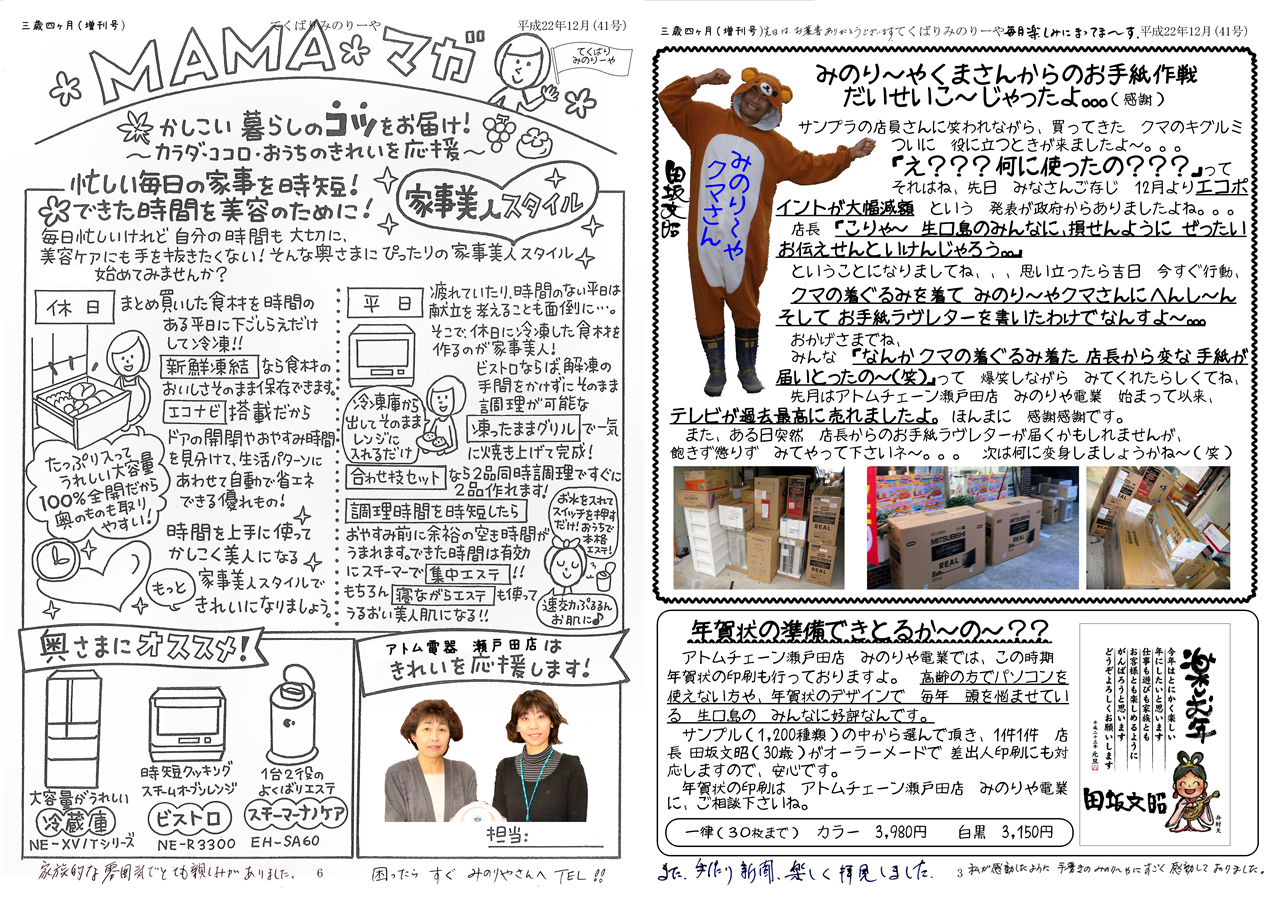 三歳四ヶ月(増刊号)
てくばりみのりーや
平成22年12月(41号)
MAMA*マガ
てくばり
みのりーや
かしこい 暮らしのコツをお届け!
〜カラダ・ココロ・おうちのきれいを応援〜
忙しい毎日の家事を時短!
できた時間を美容のために!
家事美人スタイル
毎日忙しいけれど自分の時間も大切に、
美容ケアにも手を抜きたくない!そんな奥さまにぴったりの家事美人スタイル
始めてみませんか?
休日
まとめ買いした食材を時間の
ある平日に下ごしらえだけ
して冷凍!!
新鮮凍結なら食材の
おいしさそのまま保存できます。
エコナビ搭載だから
ドアの開閉やおやすみ時間
を見分けて、生活パターンに
あわせて自動で省エネ
できる優れもの!
たっぷり入って
うれしい大容量
100%全開だから
奥のものも取り
やすい!
時間を上手に使って
かしこく美人になる
家事美人スタイルで
もっと
きれいになりましょう。
平日
疲れていたり、時間のない平日は
献立を考えることも面倒に…。
そこで、休日に冷凍した食材を
作るのが家事美人!
ビストロならば解凍の
手間をかけずにそのまま
調理が可能な
凍ったままグリルで一気
に焼き上げて完成!
冷凍庫から
出してそのまま
レンジに
入れるだけ
合わせ技セットなら2品同時調理ですぐに
2品作れます!
調理時間を時短したら
おやすみ前に余裕の空き時間が
うまれます。できた時間は有効
にスチーマーで集中エステ!!
もちろん寝ながらエステも使って
うるおい美人肌になる!!
お水を入れて
スイッチを押す
だけ!おうちで
本格
エステ!
速効ぷるるん
お肌に♪
奥さまにオススメ!
大容量がうれしい
冷蔵庫
NE-XV/Tシリーズ
時短クッキング
スチームオーブンレンジ
ビストロ
NE-R3300
1台2役の
よくばりエステ
スチーマーナノケア
EH-SA60
アトム電器 瀬戸田店は
きれいを応援します!
担当:
家族的な雰囲気でとても親しみがありました。
6
困ったら すぐ みのりやさんへ TEL!!
三歳四ヶ月(増刊号)先日は、お葉書ありがとうございますてくばりみのりーや毎月楽しみにまってま〜す。平成22年12月(41号)
みのり〜やくまさんからのお手紙作戦
だいせいこ〜じゃったよ。。。(感謝)
田坂文昭
みのり〜や
クマさん
サンプラの店員さんに笑われながら、買ってきた クマのキグルミ
ついに 役に立つときが来ましたよ〜。。。
『え???何に使ったの???』って
それはね、先日 みなさんご存じ 12月よりエコポ
イントが大幅減額 という 発表が政府からありましたよね。。。
店長 『こりゃ〜 生口島のみんなに、損せんように ぜったい
お伝えせんといけんじゃろう。。』
ということになりましてね、、、思い立ったら吉日 今すぐ行動、
クマの着ぐるみを着て みのり〜やクマさんにへんし〜ん
そして お手紙ラヴレターを書いたわけでなんすよ〜。。。
おかげさまでね、
みんな 『なんか クマの着ぐるみ着た 店長から変な手紙が
届いとったの〜(笑)』って 爆笑しながら みてくれたらしくてね、
先月はアトムチェーン瀬戸田店 みのりや電業 始まって以来、
テレビが過去最高に売れましたよ。ほんまに 感謝感謝です。
また、ある日突然 店長からのお手紙ラヴレターが届くかもしれませんが、
飽きず懲りず みてやって下さいネ〜。。。 次は何に変身しましょうかね〜(笑)
MITSUBISHI
REAL
REAL
年賀状の準備できとるか〜の〜??
アトムチェーン瀬戸田店 みのりや電業では、この時期
年賀状の印刷も行っておりますよ。 高齢の方でパソコンを
使えない方や、年賀状のデザインで 毎年 頭を悩ませてい
る 生口島の みんなに好評なんです。
サンプル(1,200種類)の中から選んで頂き、1件1件 店
長 田坂文昭(30歳)がオーラーメードで 差出人印刷にも対
応しますので、安心です。
年賀状の印刷は アトムチェーン瀬戸田店 みのりや電業
に、ご相談下さいね。
一律(30枚まで) カラー 3,980円 白黒 3,150円
楽しむ年
今年はとにかく楽しい
年にしたいと思います
仕事も遊びも家族とも
お客様とも楽しめるように
がんばろうと思います
どうぞよろしくお願いします
平成二十三年 元旦
田坂文昭
弁財天
また、手作り新聞、楽しく拝見しました。
3
私が感動したように 手書きのみのり〜やにすごく感動しておりました。